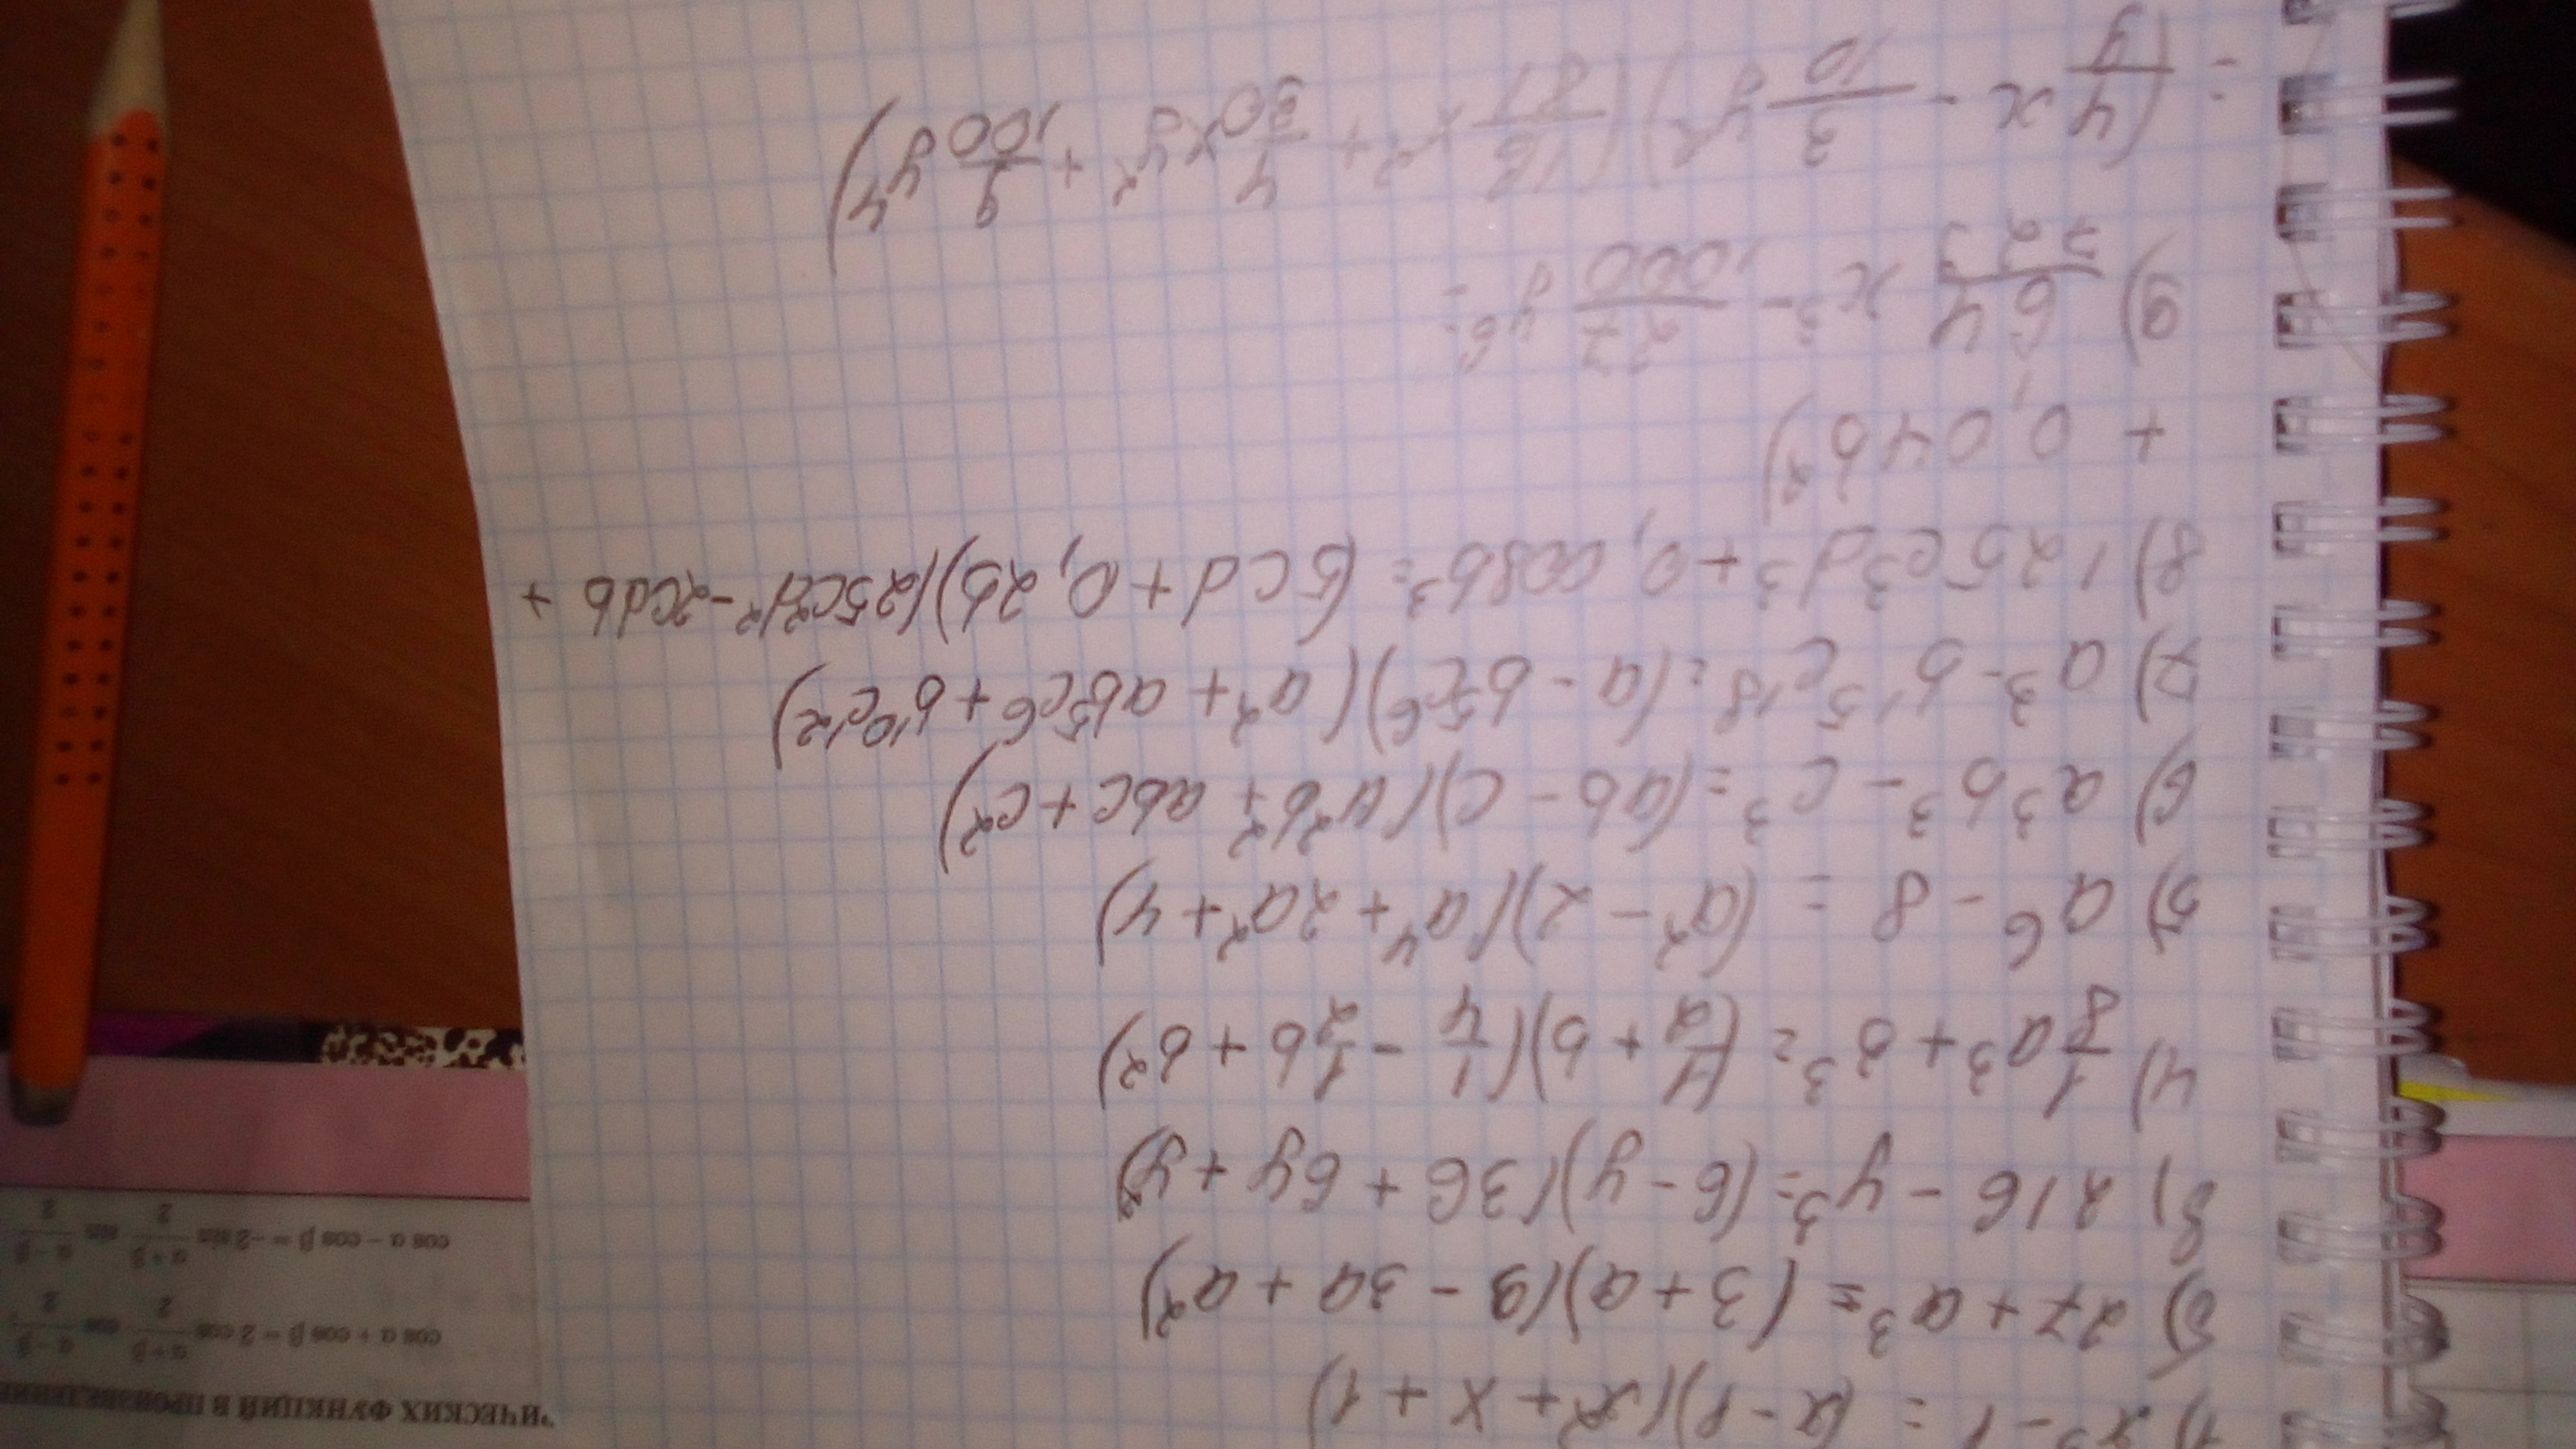 1) x³ - 1 = (x - 1)(x² + x + 1)
5) 27 + a³ = (3 + a)(9 - 3a + a²)
3) 216 - y³ = (6 - y)(36 + 6y + y²)
4) 1/8 a³ + b³ = (1/2 + b)(1/4 - 1/2 b + b²)
5) a⁶ - 8 = (a² - 2)(a⁴ + 2a² + 4)
6) a³b³ - c³ = (ab - c)(a²b² + abc + c²)
7) a³ - b¹⁵c¹⁸ = (a - b⁵c⁶)(a² + ab⁵c⁶ + b¹⁰c¹²)
8) 125c³d³ + 0,008b³ = (5cd + 0,2b)(25c²d² - 2cdb +
+ 0,04b²)
9) 64/723 x³ - 27/1000 y⁶ =
= (4/9 x - 3/10 y²)(16/81 x² + 4/30 xy² + 9/100 y⁴)
ИЧЕСКИХ ФУНКЦИЙ В ПРОИЗВЕДЕНИЕ
cos α + cos β = 2 cos α+β/2 cos α-β/2
cos α - cos β = -2 sin α+β/2 sin α-β/2